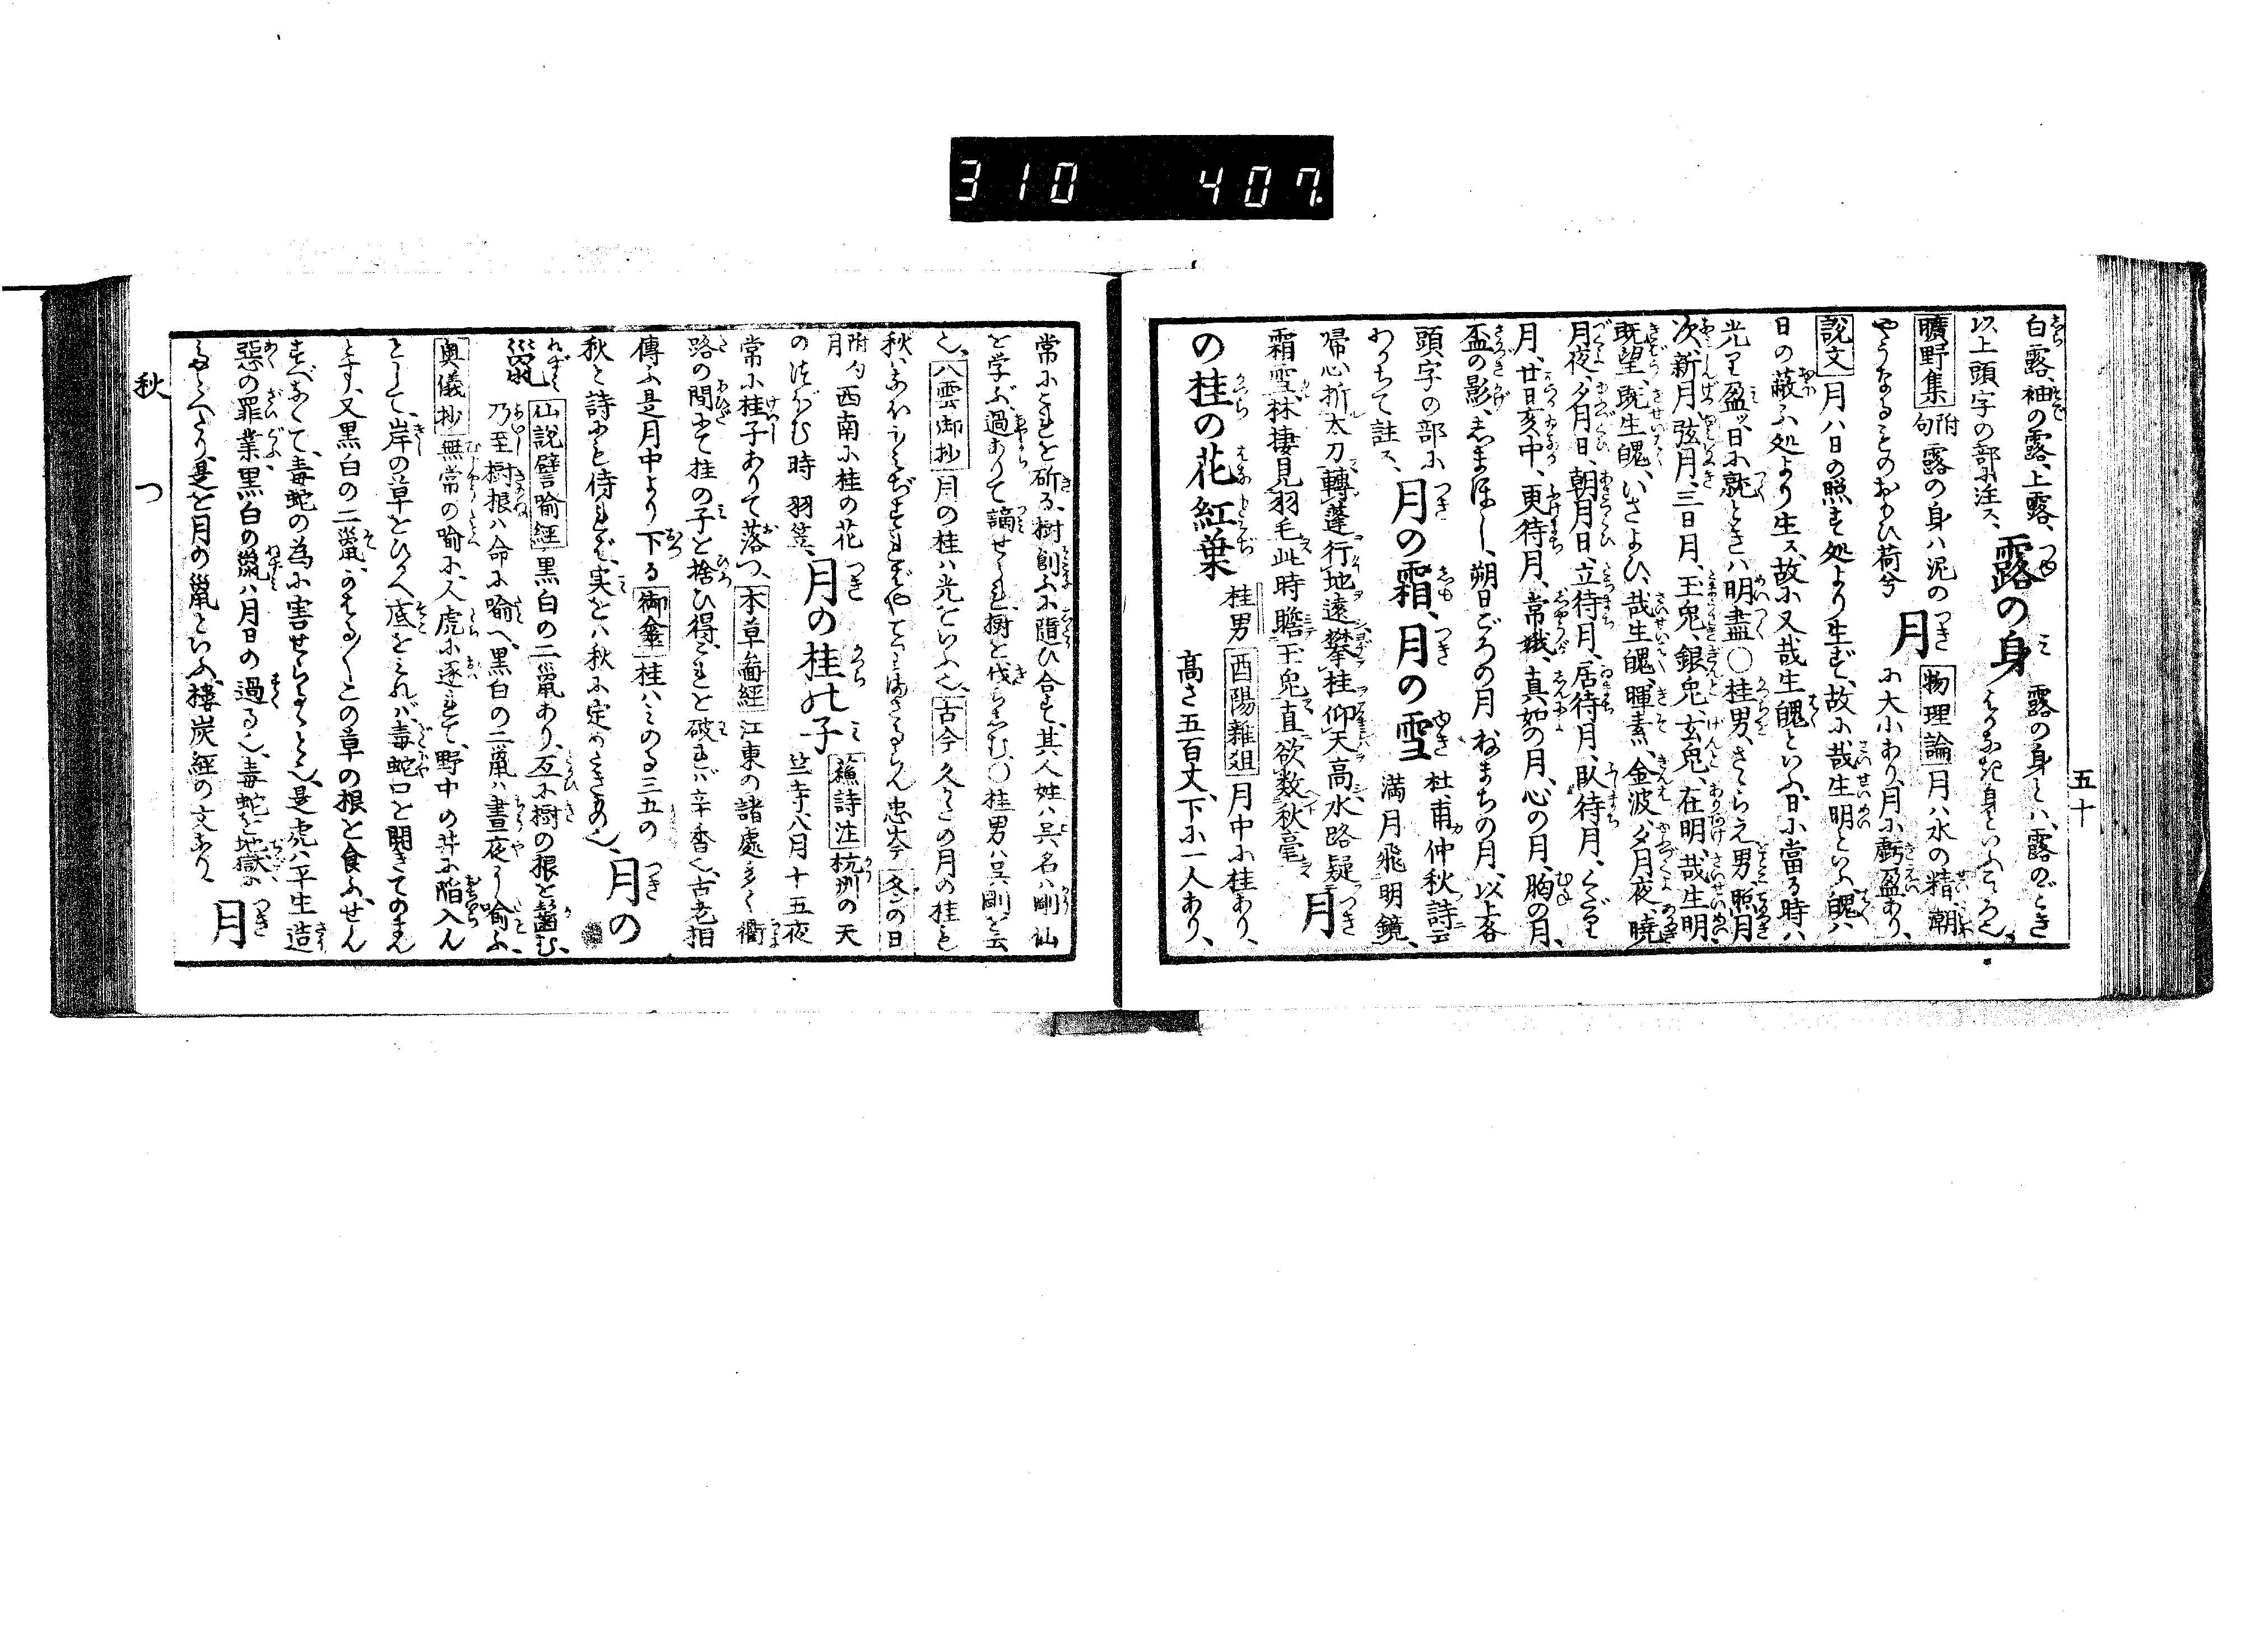 310 407
五十
白露、袖の露、上露、露の身 露の身とハ、露のごとき
以上頭字の部に注ス、はかなき身といふこゝろ也、
曠野集 附句 露の身ハ泥の 月 物理論 月ハ水の精、潮
やうなるものおもひ荷兮 に大小あり、月に虧盈あり、
説文 月ハ日の照す処より生ず、故に哉生明といふ、魄ハ
日の蔽ふ処より生ス、故に又哉生魄といふ、日に當る時ハ
光り盈ッ、日に就ときハ明盡〇桂男、さゝらえ男、照月
次、新月、弦月、三日月、玉兎、銀兎、玄兎、在明、哉生明、
既望、既生魄、いさよひ、哉生魄、暉素、金波、夕月夜、暁
月夜、夕月日、朝月日、立待月、居待月、臥待月、くだり
月、廿日亥中、更待月、常娥、真如の月、心の月、胸の月、
盃の影、しまぼし、朔日ごろの月、ねまちの月、以上各
頭字の部に 月の霜、月の雪 杜甫 仲秋詩云
わかちて註ス、 満月飛明鏡、
帰心折太刀、轉蓬行地遠、攀桂仰天高、水路疑
霜雪、林棲見羽毛、此時瞻玉兎、直欲数秋毫、月
の桂の花紅葉 桂男 酉陽雜俎 月中に桂あり、
高さ五百丈、下に一人あり、
常にこれを斫る、樹創ふに随ひ合す、其人姓ハ呉名ハ剛仙
を学ぶ、過ありて謫せられ、樹を伐らしむ、〇桂男ハ呉剛を云
也、八雲御抄 月の桂ハ光をいふ也、古今 久かたの月の桂も
秋ハなほもみぢすればやてりまさるらん 忠岑 冬の日
附句 西南に桂の花 月の桂の子 蘓詩注 杭州の天
月のつぼむ時 羽笠、 竺寺八月十五夜
常に桂子ありて落つ、本草啚經 江東の諸處多く衢
路の間にて桂の子を捨ひ得、これを破れバ辛香也、古老相
傳ふ是月中より下る 御傘 桂ハミのる三五の
秋と詩にも侍れど、実をハ秋に定がたきもの也、月の
鼠 仙説譬喩經 黒白の二鼠あり、互に樹の根を齧む、
乃至樹根ハ命に喩へ、黒白の二鼠ハ晝夜に喩ふ、
奥儀抄 無常の喩に、人虎に逐れて、野中の井に陥入ん
として、岸の草をひかへ底をミれバ、毒蛇口を開きてのまん
とす、又黒白の二鼠、かはる〱この草の根を食ふ、せん
すべなくて、毒蛇の為に害せらるゝと也、是虎ハ平生造
惡の罪業、黒白の鼠ハ月日の過る也、毒蛇を地獄に
たとへたり、是を月の鼠といふ、樓炭經の文なり、 月
秋
つ